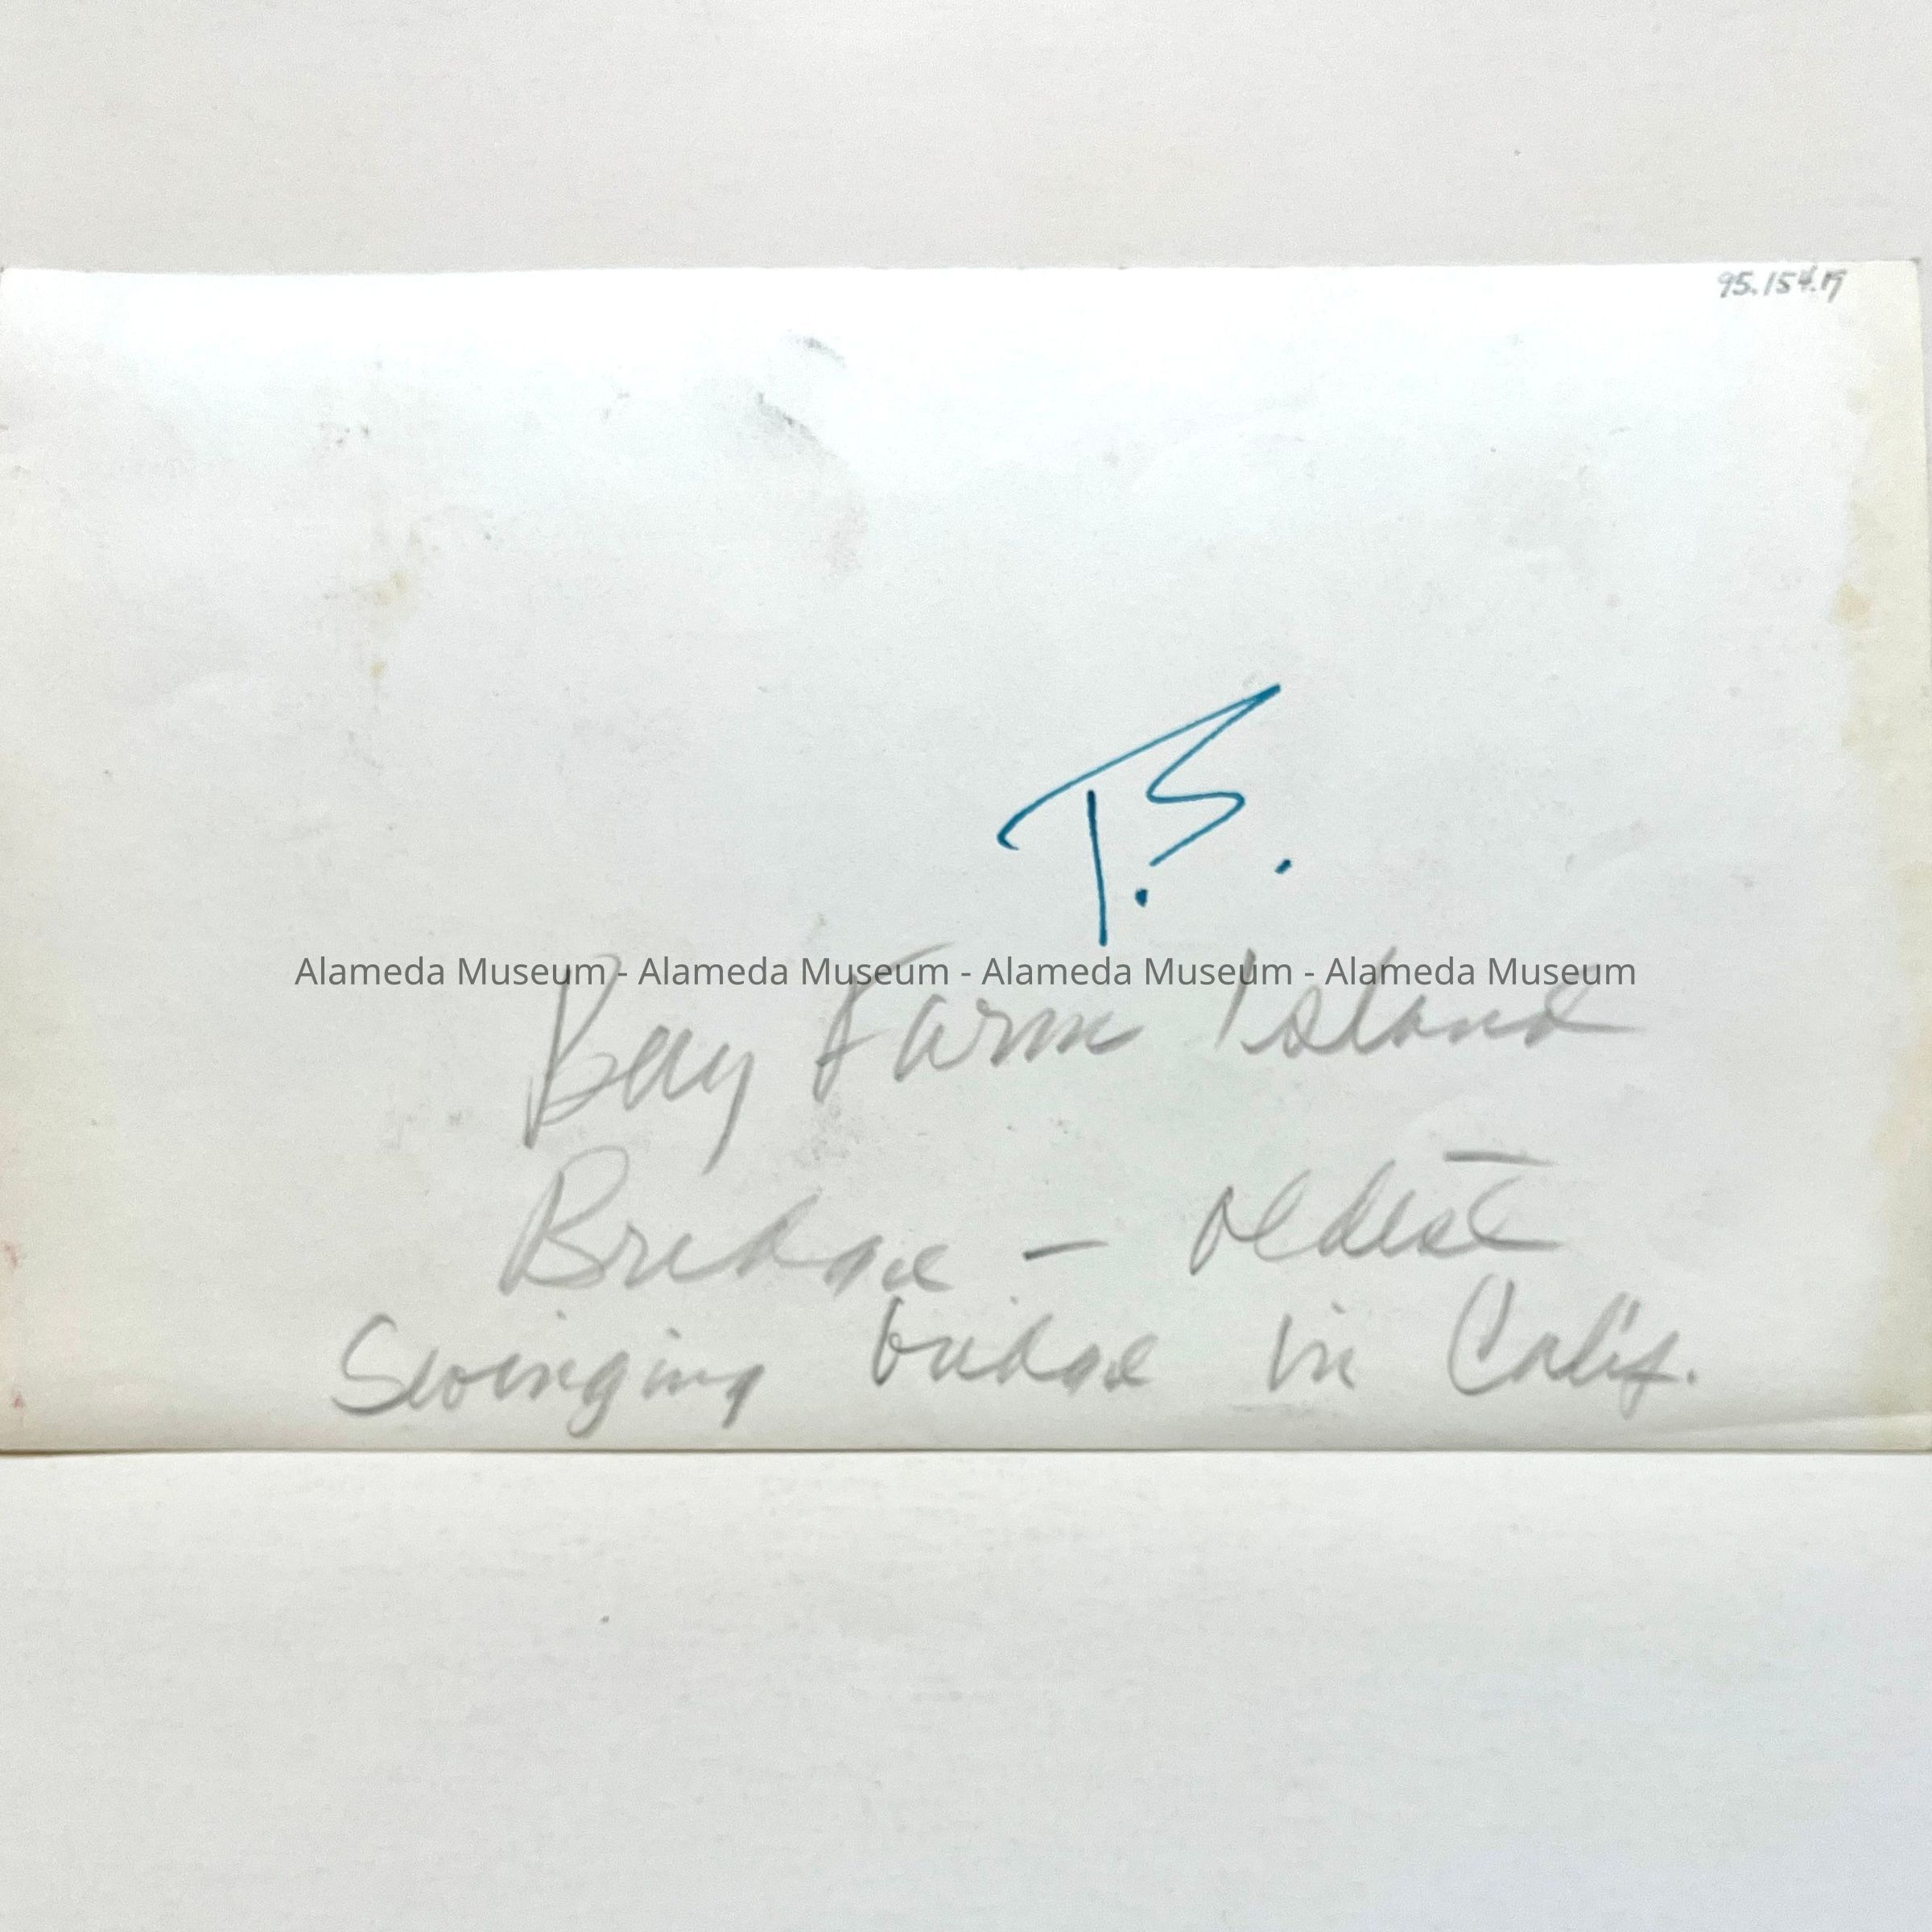 95.154.17
T.S.
Alameda Museum - Alameda Museum - Alameda Museum - Alameda Museum
Bay Farm Island
Bridge - oldest
Swinging bridge in Calif.